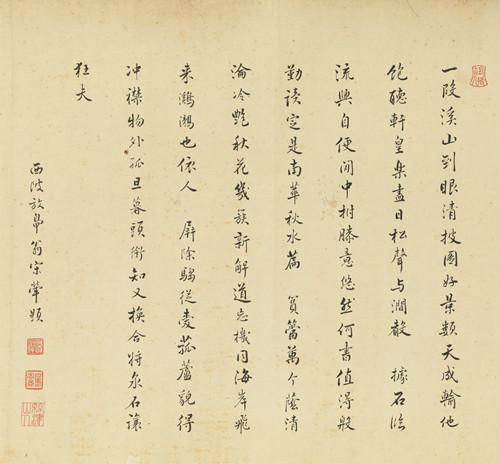 一段溪山到眼清披圖好景類天成輸他
飽聽軒皇樂盡日松聲与澗聲 據石臨
流興自便閒中膝意悠然何書值得殷
勤讀定是南華秋水篇 篔簹萬个蔭清
淪冷艷秋花幾族新解道忘機同海岸飛
來也依人 屏除騶從愛菰蘆貌得
冲襟物外孤旦暮頭銜知又換合將泉石讓
狂夫
西陂放鴨翁宋犖題